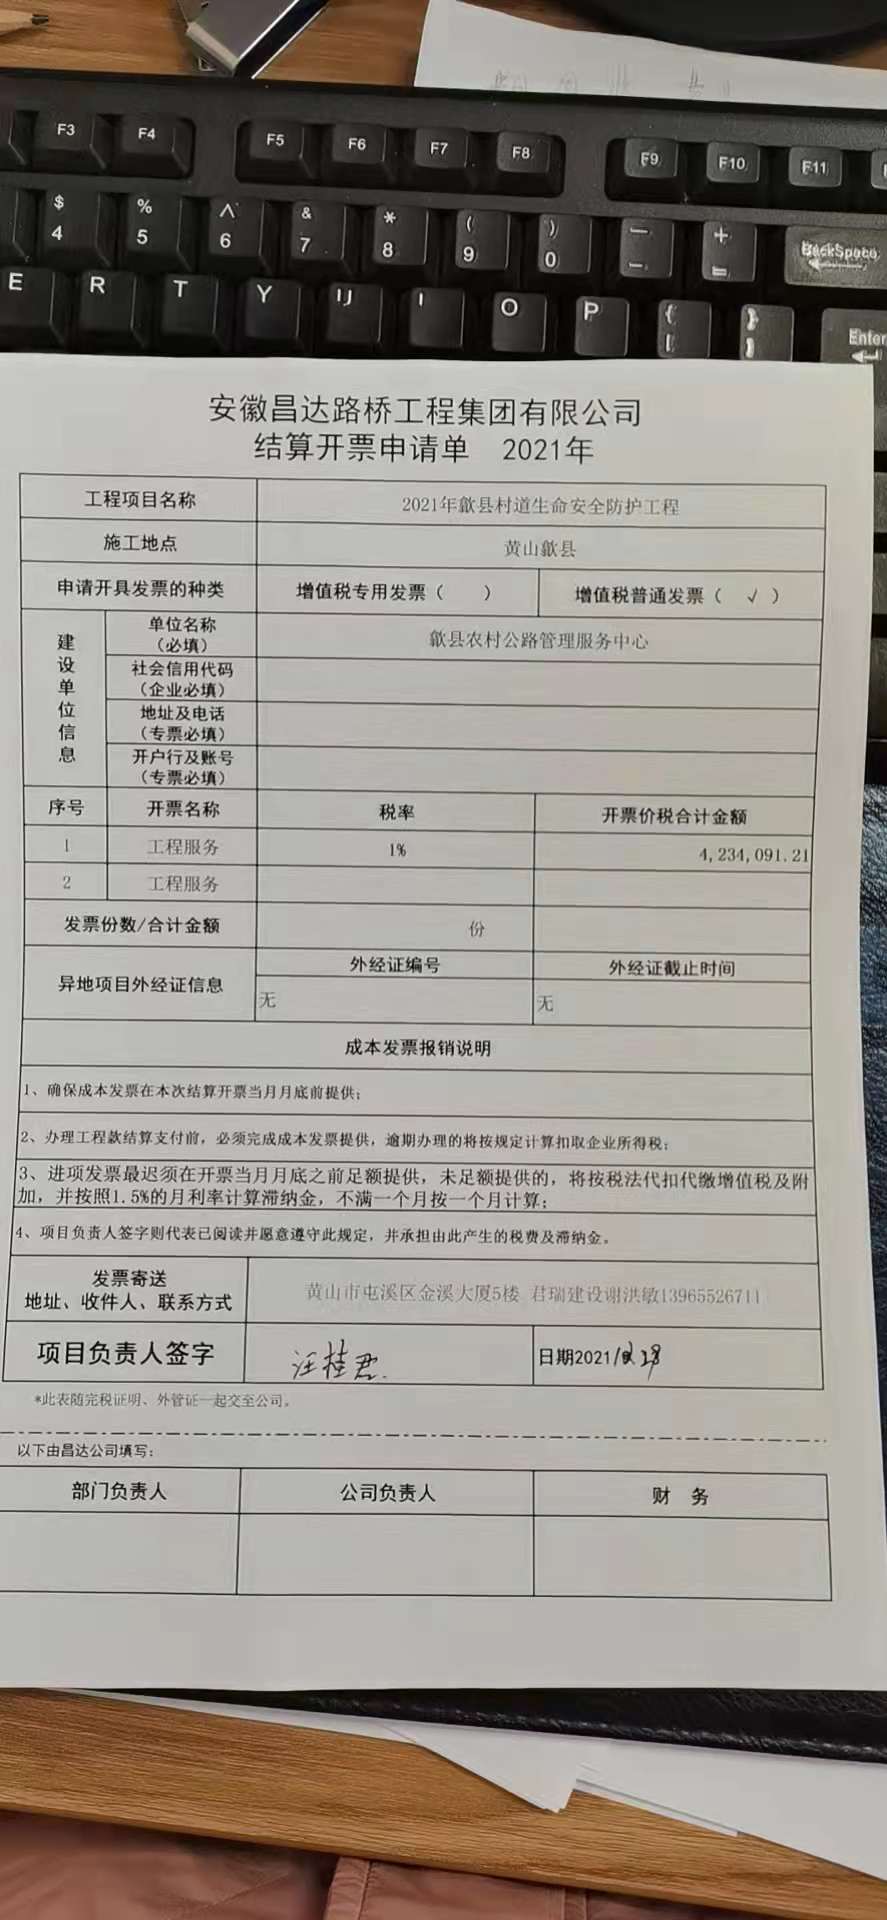 F3 F4 F5 F6 F7 F8 F9 F10 F11
$ % ^ & * ( ) — +
4 5 6 7 8 9 0 - =
BackSpace
E R T Y U I O P { }
[ ]
Enter
安徽昌达路桥工程集团有限公司
结算开票申请单 2021年
工程项目名称 2021年歙县村道生命安全防护工程
施工地点 黄山歙县
申请开具发票的种类 增值税专用发票（ ） 增值税普通发票（ √ ）
建设单位信息
单位名称
（必填） 歙县农村公路管理服务中心
社会信用代码
（企业必填）
地址及电话
（专票必填）
开户行及账号
（专票必填）
序号 开票名称 税率 开票价税合计金额
1 工程服务 1% 4,234,091.21
2 工程服务
发票份数/合计金额 份
异地项目外经证信息 外经证编号 外经证截止时间
无 无
成本发票报销说明
1、确保成本发票在本次结算开票当月月底前提供；
2、办理工程款结算支付前，必须完成成本发票提供，逾期办理的将按规定计算扣取企业所得税；
3、进项发票最迟须在开票当月月底之前足额提供，未足额提供的，将按税法代扣代缴增值税及附
加，并按照1.5%的月利率计算滞纳金，不满一个月按一个月计算；
4、项目负责人签字则代表已阅读并愿意遵守此规定，并承担由此产生的税费及滞纳金。
发票寄送
地址、收件人、联系方式 黄山市屯溪区金溪大厦5楼 君瑞建设谢洪敏13965526711
项目负责人签字 汪桂君 日期2021/
*此表随完税证明、外管证一起交至公司。
以下由昌达公司填写：
部门负责人 公司负责人 财 务